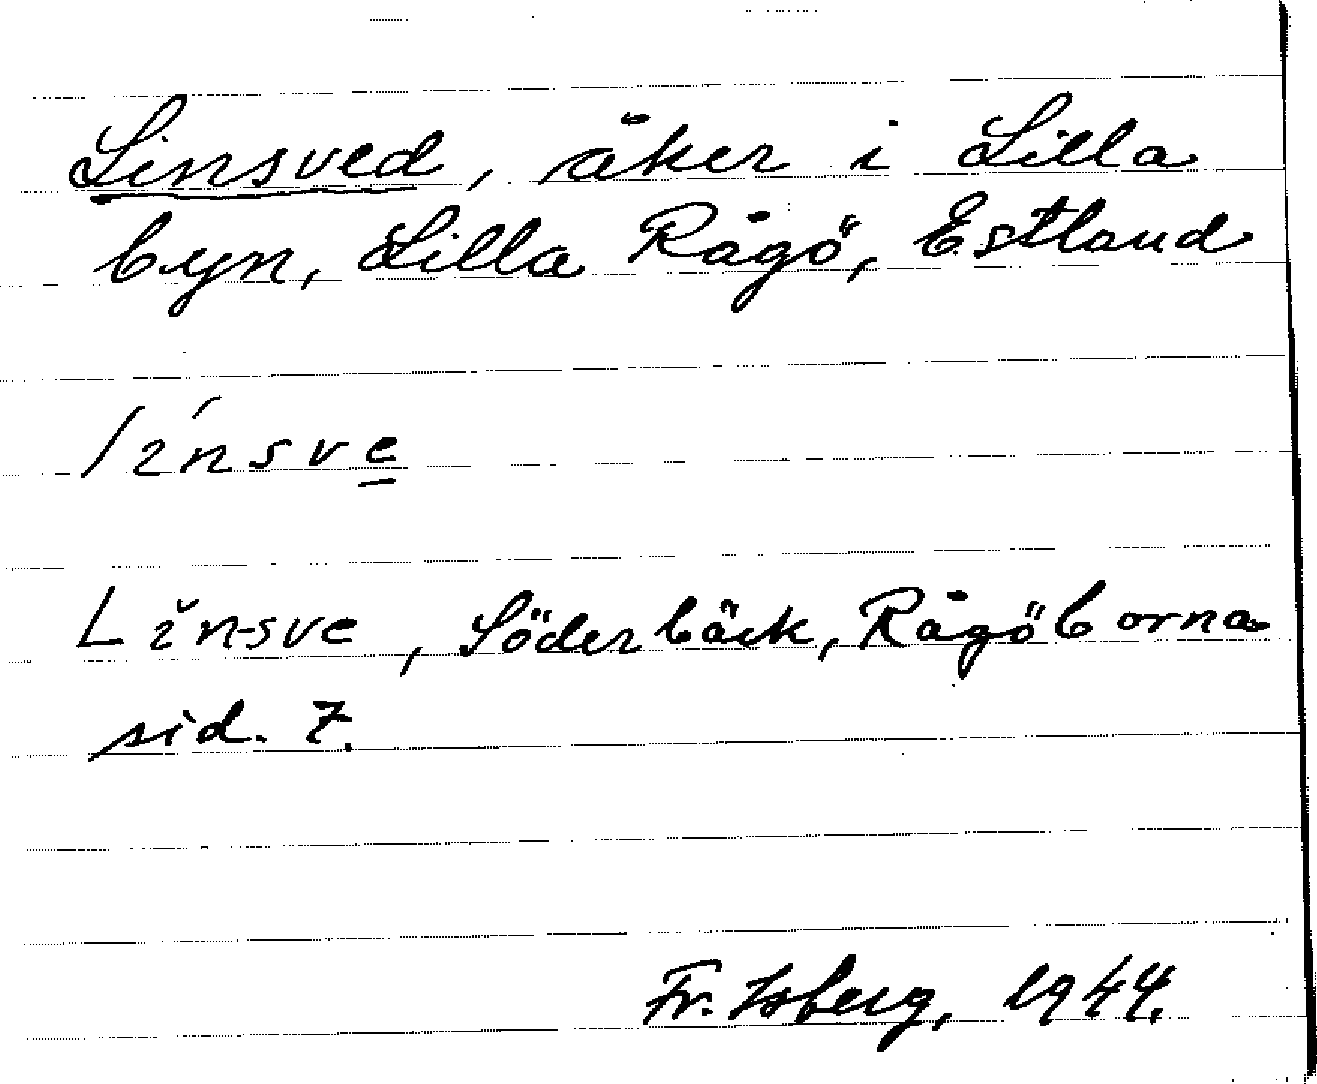 Linsved, åker i Lilla
byn, Lilla Rågö, Estland
línsve
Linsve, Söderbäck, Rågöborna
sid. 7.
Fr. Isberg, 1944.